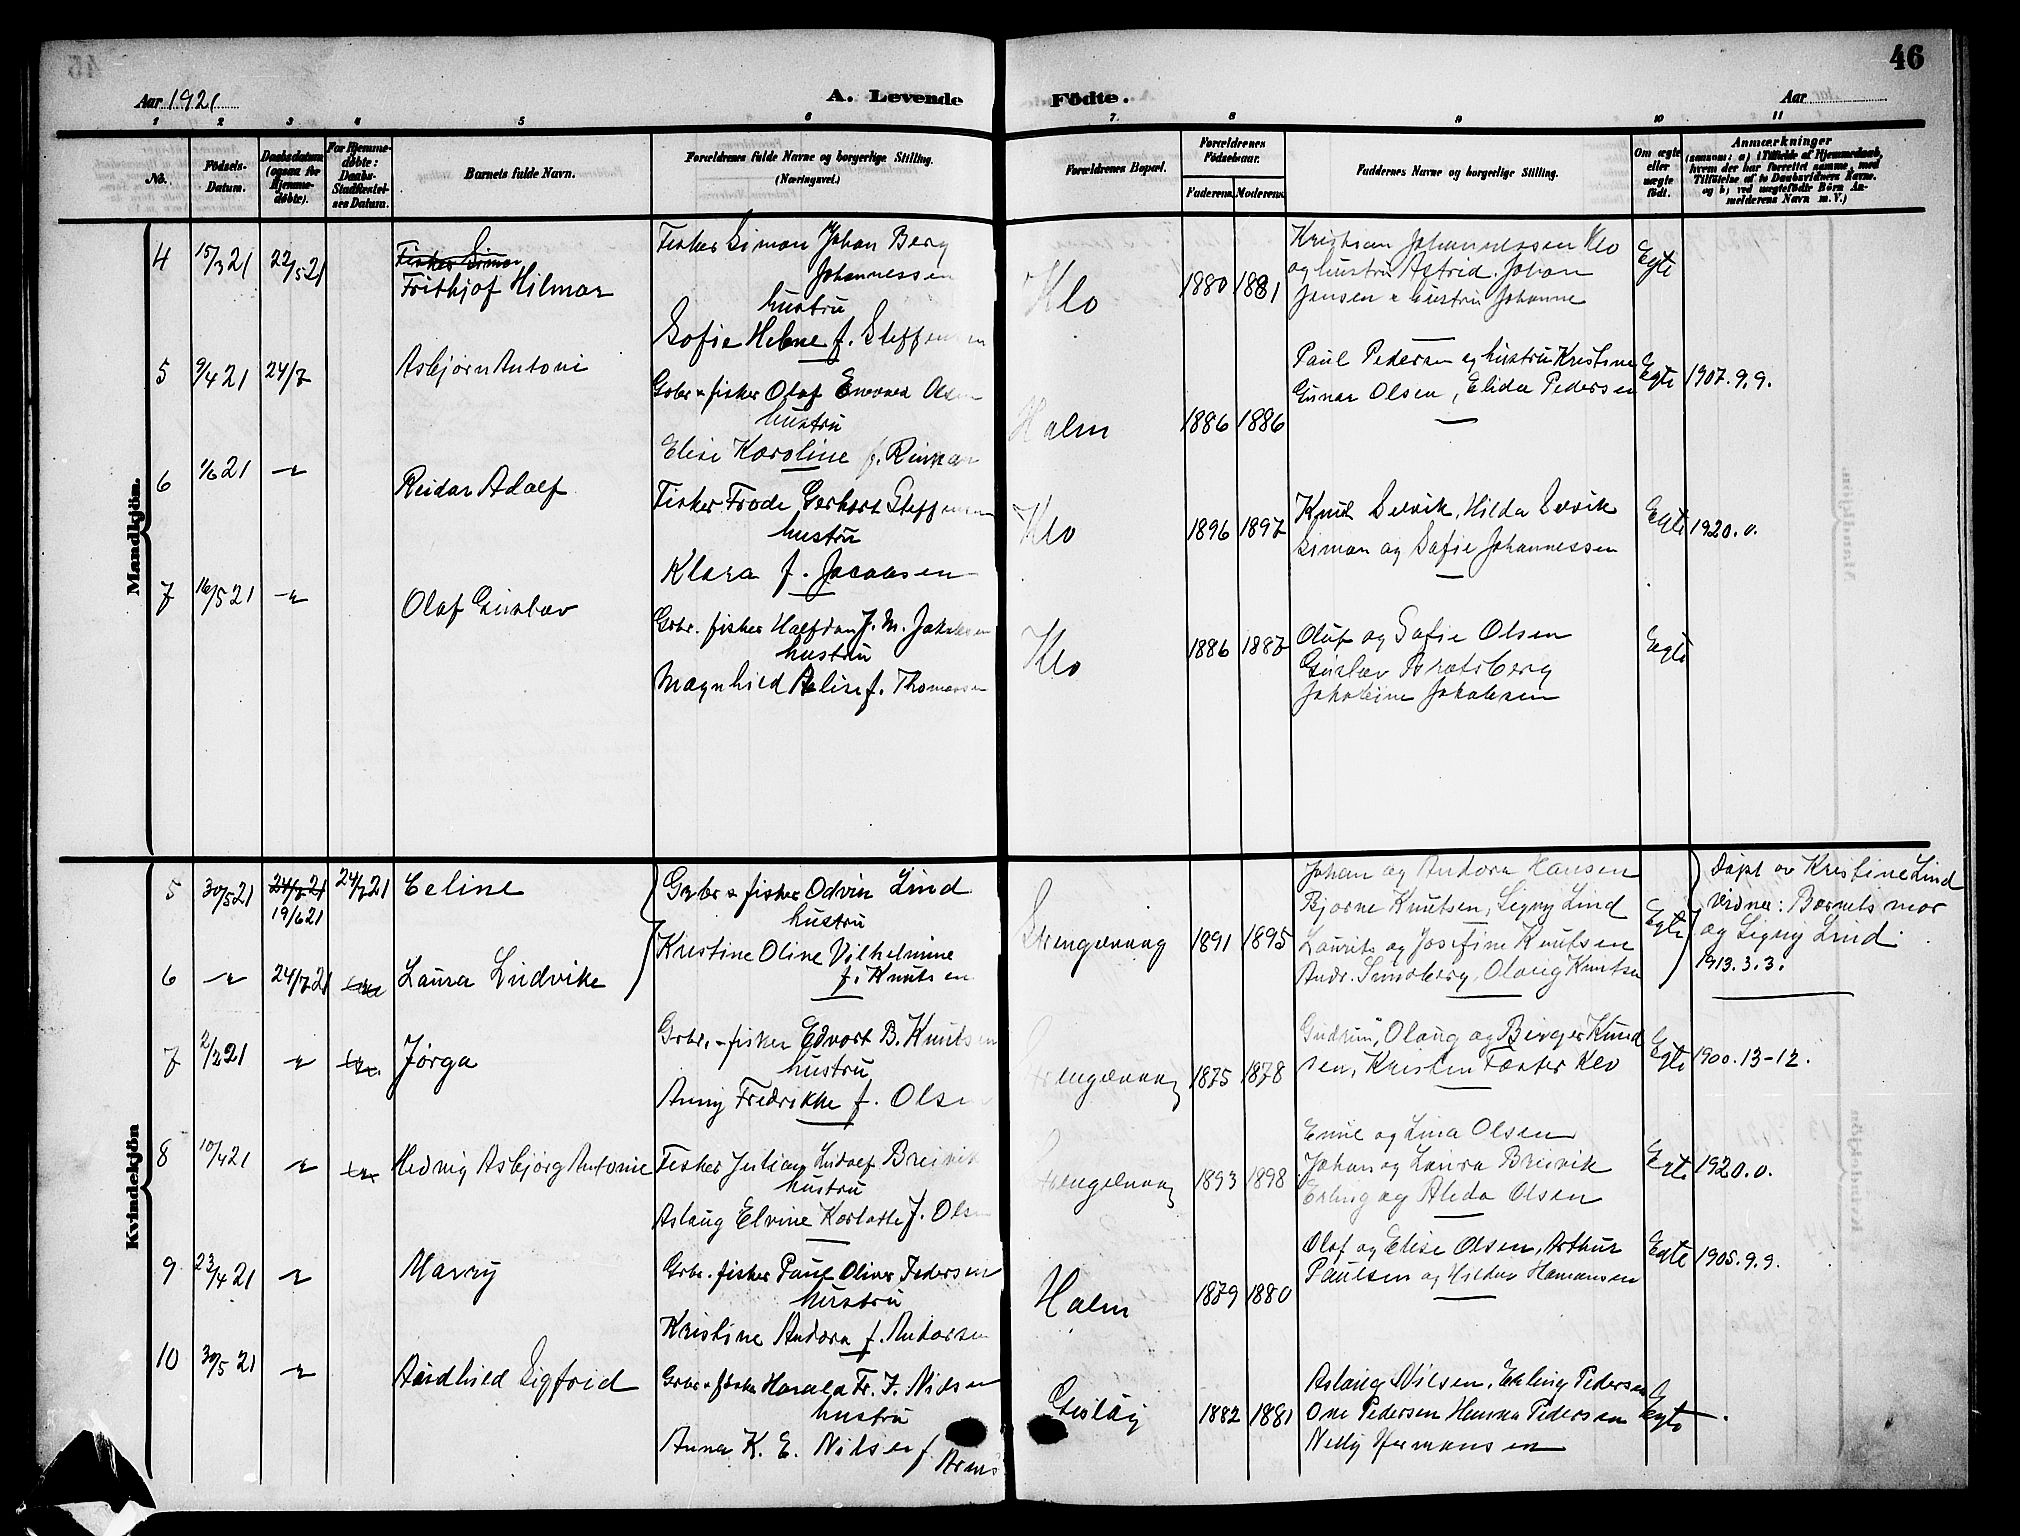 46
Aar 1921
A. Levende Födte.
Aar
1 2 3 4 5 6 7. 8 9 10 11
No.
Födsels-
Datum.
Daabsdatum
(ogsaa for
Hjemme-
döbte).
For Hjemme-
döbte:
Daabs-
Stadfæstel-
ses Datum.
Barnets fulde Navn.
Forældrenes fulde Navne og borgerlige Stilling.
(Næringsvei.)
Forældrenes Bopæl.
Forældrenes
Födselsaar.
Faderens. Moderens.
Faddernes Navne og borgerlige Stilling.
Om ægte
eller
uægte
födt.
Anmærkninger
(saasom: a) i Tilfælde af Hjemmedaab,
hvem der har forrettet samme, med
Tilföielse af to Daabsvidners Navne.
og b) ved uægtefödte Börn An-
melderens Navn m. V.)
Mandkjön.
4 15/3 21 22/5 21
Fisker Simon
Frithjof Hilmar
Fisker Simon Johan Berg
Johannessen
hustru
Sofie Helene f. Steffensen
Klo 1880 1881
Kristian Johannessen Klo
og hustru Astrid. Johan
Jensen & hustru Johanne
Egte
5 9/4 21 24/7
Asbjørn Antoni
Grbr & fisker Olaf Olsen
hustru
Elise Karoline f.
Holm 1886 1886
Paul Pedersen og hustru Kristine
Gunar Olsen, Elida Pedersen
Egte 1907. 9. 9.
6 1/6 21 -"-
Reidar Adolf
Fisker Frode Gerhart Steffensen
hustru
Klara f. Jacobsen
Klo 1896 1897
Knut Selvik, Hilda Selvik
Simon og Sofie Johannessen
Egte 1920. 0.
7 16/5 21 -"-
Olaf Gustav
Grbr. fisker Halfdan J. M. Jakobsen
hustru
Magnhild f. Thomassen
Klo 1886 1887
Oluf og Sofie Olsen
Gustav Bratsberg
Jakobine Jakobsen
Egte
Kvindekjön
5 30/5 21 24/7 21 24/7 21
19/6 21
Celine
Grbr & fisker Odvin Lind
hustru
Kristine Oline Vilhelmine
f. Knutsen
Strengelvaag 1891 1895
Johan og Andora Hansen
Bjarne Knutsen, Signy Lind
Laurits og Josefine Knutsen
Andr. Sundberg, Olaug Knutsen
Egte
Døpt av Kristine Lind
vidner: Barnets mor
og Signy Lind
1913. 3. 3.
6 -"- 24/7 21
Laura Ludvike
7 2/2 21 -"-
Jørga
Grbr. - fisker Edvart B. Knutsen
hustru
Anny Fredrikke f. Olsen
Strengelvaag 1875 1878
Gudrun, Olaug og Birger Knud
sen, Kristen Fæster Klo
Egte 1900. 13-12.
8 10/4 21 -"-
Hedvig Asbjørg Antonie
Fisker Julian Ludolf Breivik
hustru
Aslaug Elvine Karlotte f. Olsen
Strengelvaag 1893 1898
Emil og Lina Olsen
Johan og Laura Breivik
Erling og Alida Olsen
Egte 1920. 0.
9 23/4 21 -"-
Marry
Grbr. fisker Paul Oliver Pedersen
hustru
Kristine Andora f. Andorsen
Holm 1879 1880
Olaf og Elise Olsen, Arthur
Paulsen og Hildur Hemansen
Egte 1905. 9. 9.
10 30/5 21 -"-
Audhild Sigfrid
Grbr & fisker Harald Fr. J. Nilsen
hustru
Anna K. E. Nilsen f.
1882 1881
Aslaug Nilsen, Erling Pedersen
One Pedersen Henna Pedersen
Nelly Hermansen
Egte -.